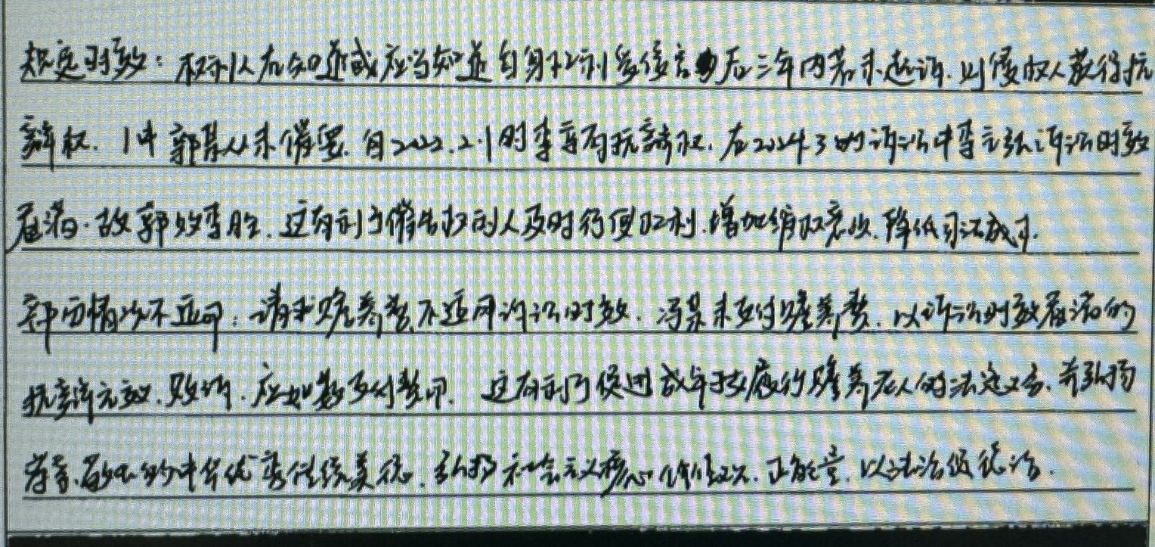 规定时效：权利人在知道或应当知道自身权利受侵害后三年内若未起诉，则侵权人获得抗
辩权。1中郭某从未催要，自2022.2.1时李享有抗辩权，在2024.3的诉讼中李主张诉讼时效
届满，故郭败李胜。这有利于催告权利人及时行使权利，增加维权意识，降低司法成本。
部分情况不适用：请求赡养费不适用诉讼时效，冯某未支付赡养费，以诉讼时效届满的
抗辩无效，败诉，应如数支付费用。这有利于促进成年子女履行赡养老人的法定义务，弘扬
孝亲敬老的中华优秀传统美德，弘扬社会主义核心价值观，正能量，以法治促德治。